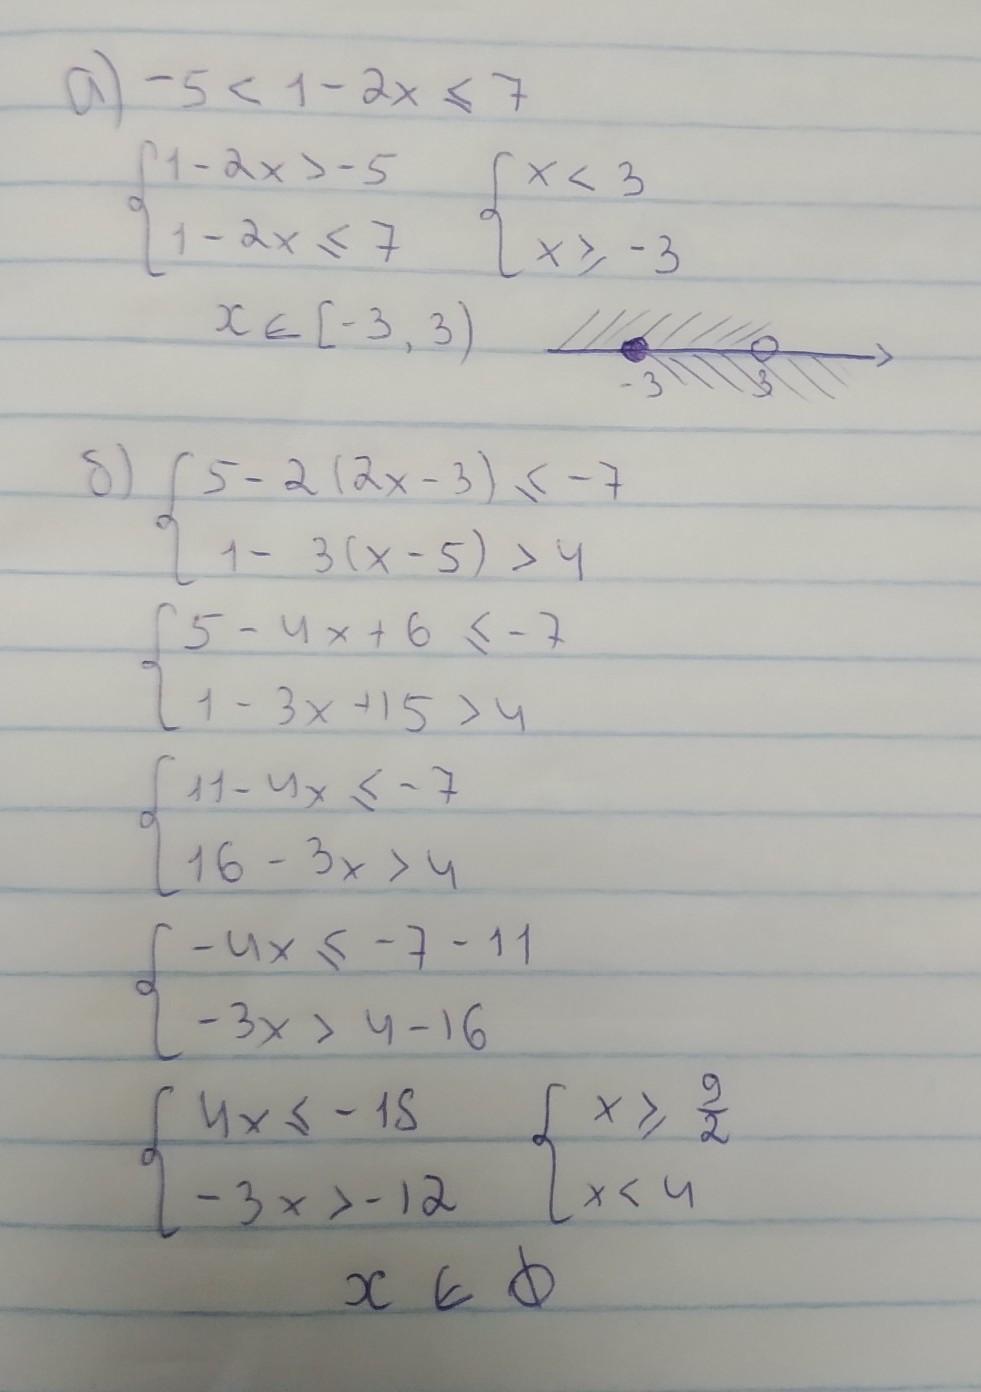 а) -5 < 1 - 2x ⩽ 7
{1 - 2x > -5 {x < 3
{1 - 2x ⩽ 7 {x ⩾ -3
x ∈ [-3, 3)
-3 3
б) {5 - 2(2x - 3) ⩽ -7
{1 - 3(x - 5) > 4
{5 - 4x + 6 ⩽ -7
{1 - 3x + 15 > 4
{11 - 4x ⩽ -7
{16 - 3x > 4
{-4x ⩽ -7 - 11
{-3x > 4 - 16
{4x ⩽ -18 {x ⩾ 9/2
{-3x > -12 {x < 4
x ∈ ∅